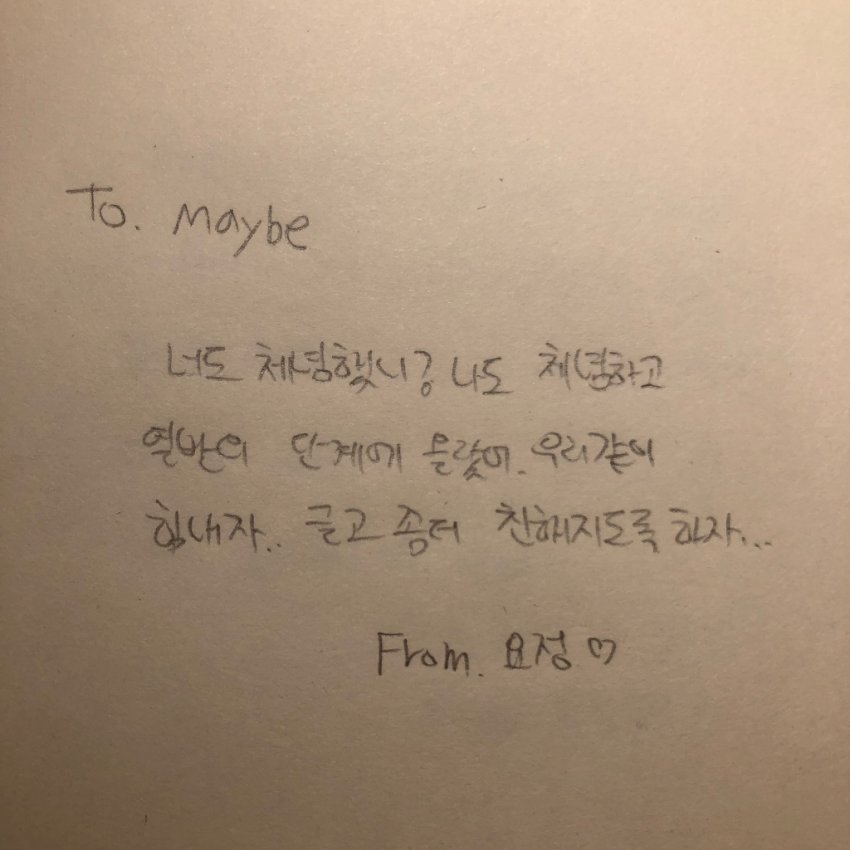 To. Maybe
너도 체념했니? 나도 체념하고
열반의 단계에 올랐어. 우리같이
힘내자.. 글고 좀더 친해지도록 하자...
From. 요정 ♡